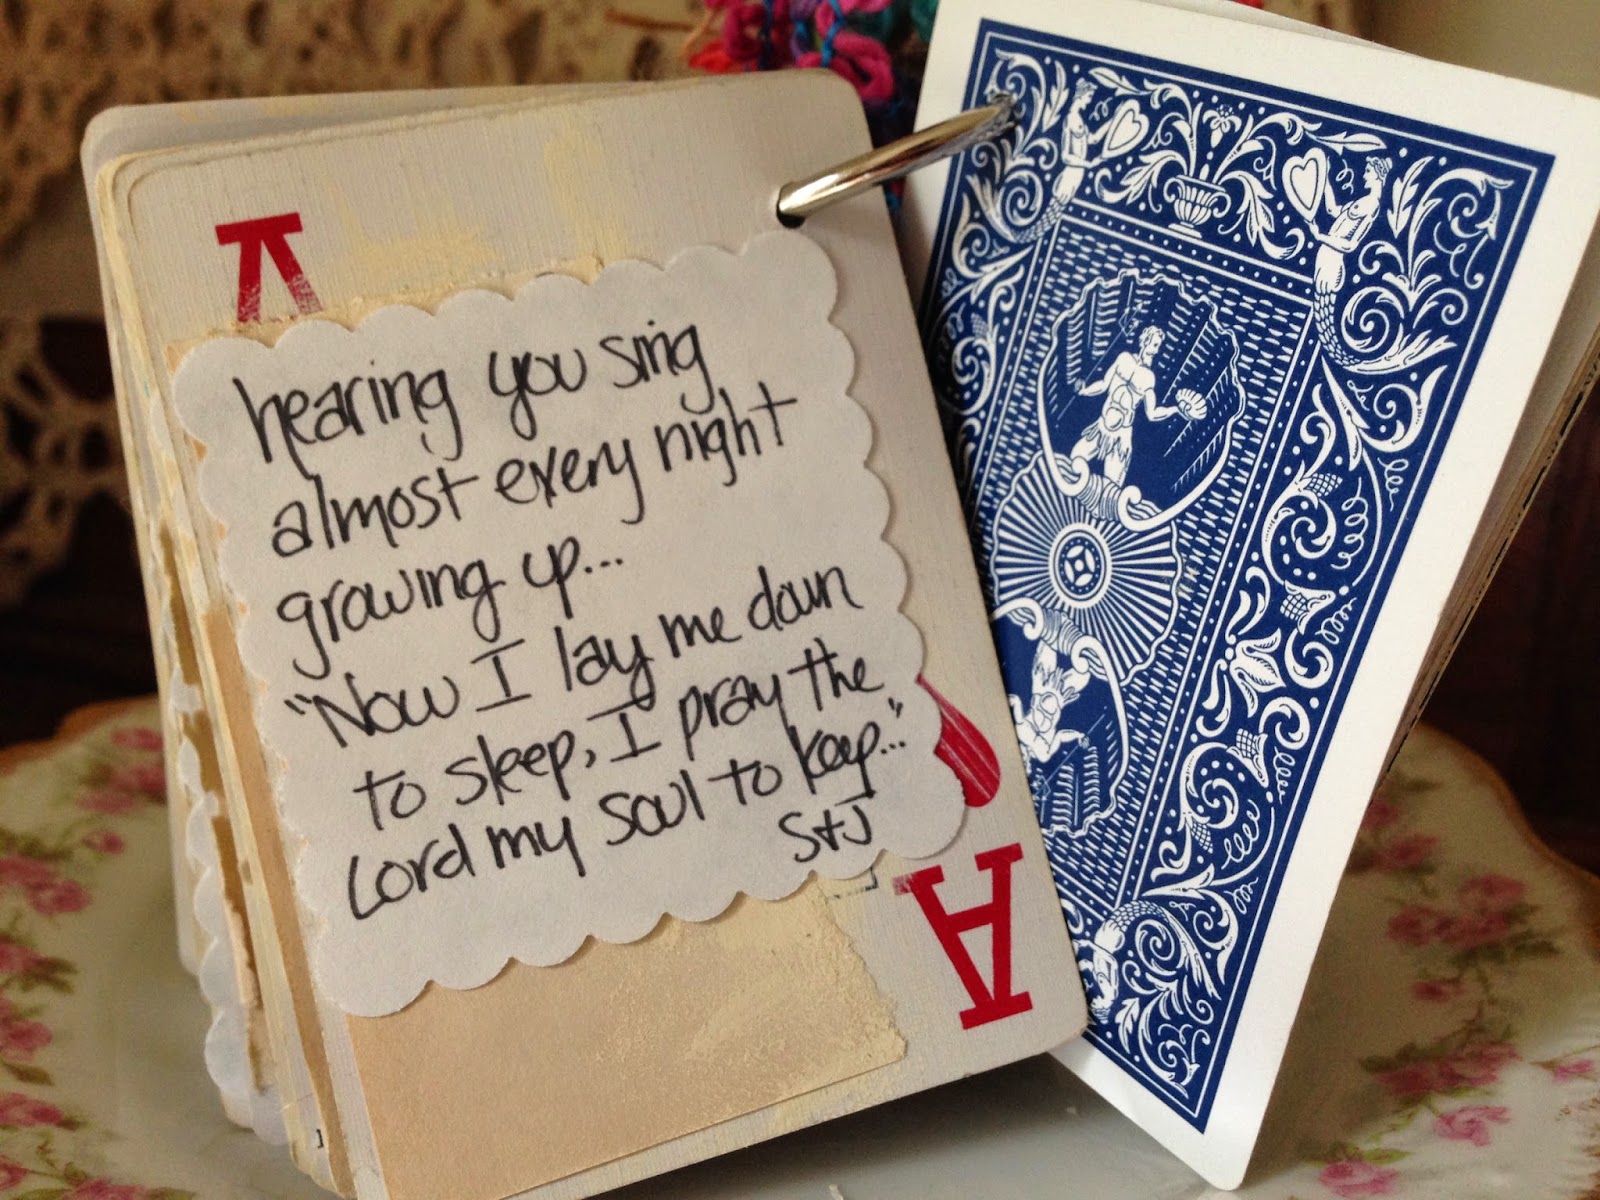 A
hearing you sing
almost every night
growing up...
"Now I lay me down
to sleep, I pray the
Lord my soul to keep..."
S+J
A